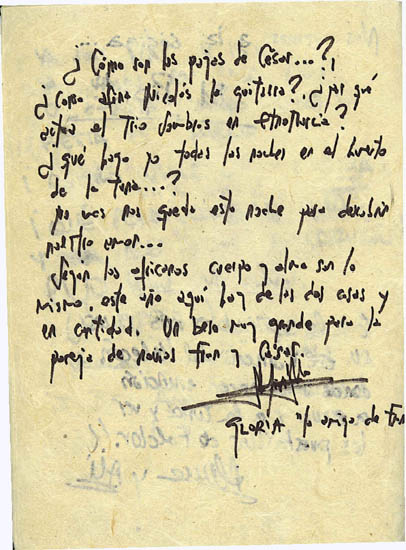 ¿Cómo son los pajas de César...?,
¿como afina Nicolás la guitarra?, ¿por qué
actua el Trio Sombrios en etnomurcia?
¿qué hago yo todas las noches en el huerto
de la tuna...?
no nos queda esta noche para descubrir
nuestro error...
Segun los africanos cuerpo y alma son lo
mismo, este año aquí hay de las dos cosas y
en cantidad. Un beso muy grande para la
pareja de novios Fran y Cesar.
GLORIA "la amiga de Fran